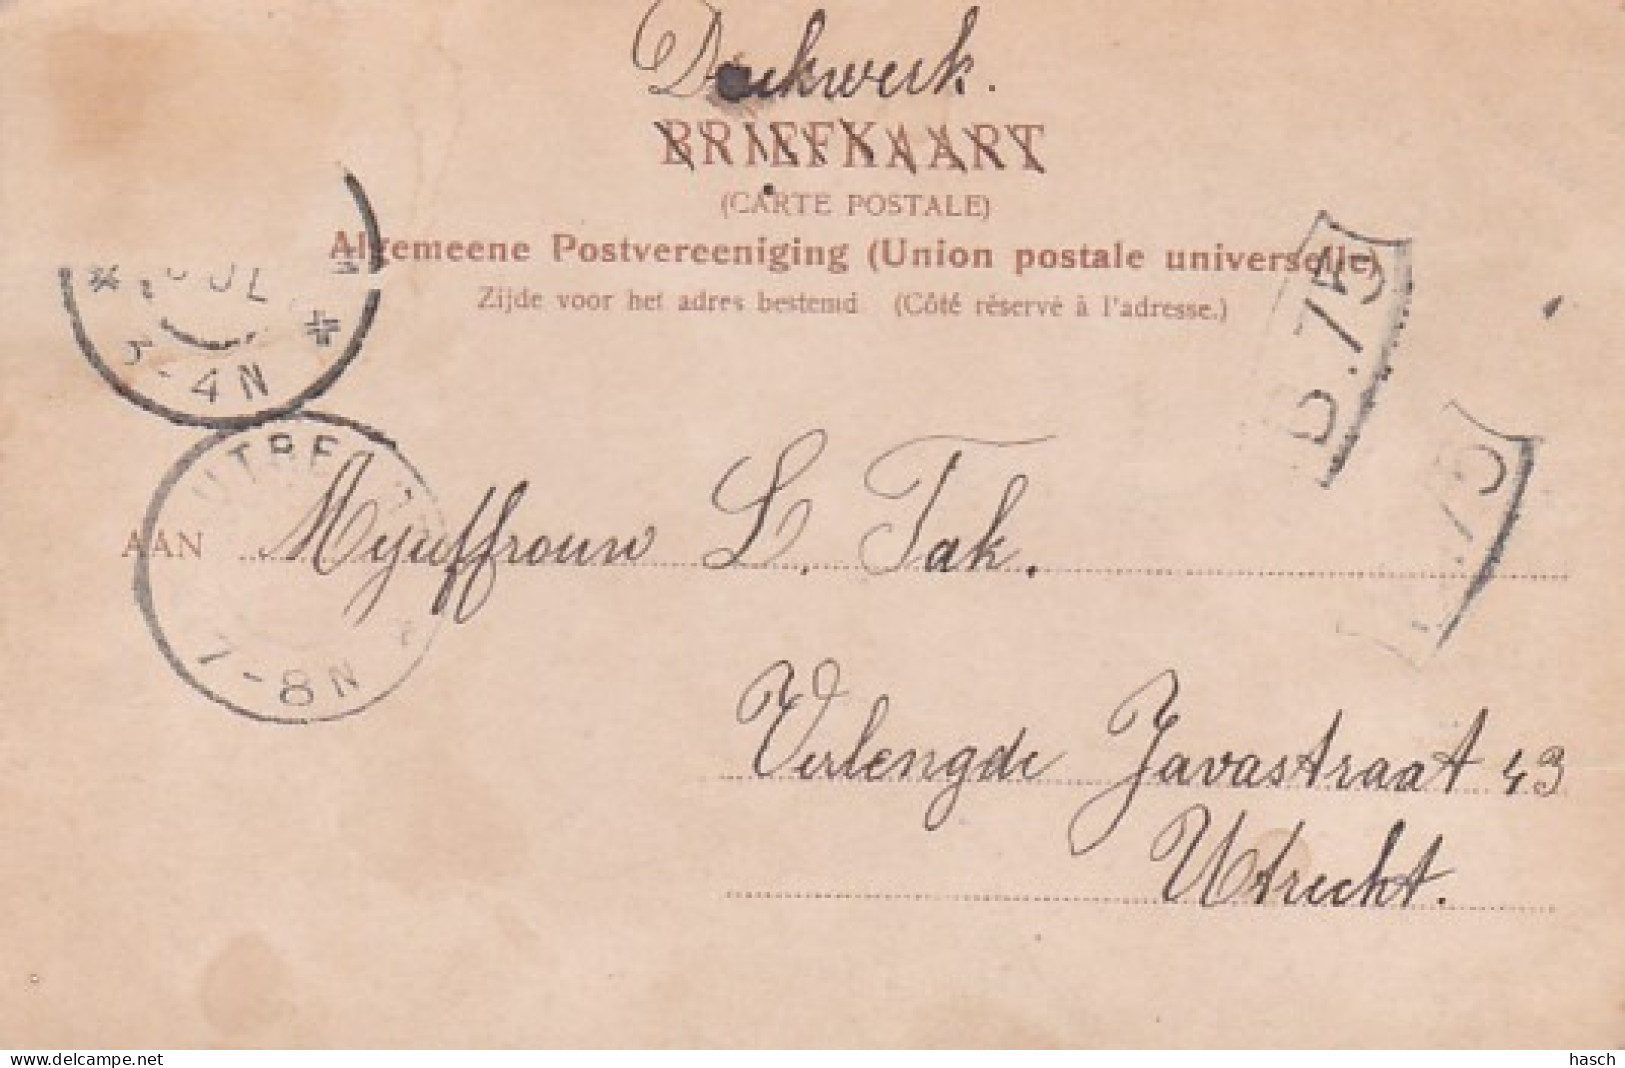 Drukwerk.
BRIEFKAART
(CARTE POSTALE)
Algemeene Postvereeniging (Union postale universelle)
Zijde voor het adres bestemd (Côté réservé à l'adresse.)
JUL
4N
B.75
75
UTRE
7-8N
AAN Mejuffrouw L. Tak.
Verlengde Javastraat 43
Utrecht.
delcampe.net
hasch